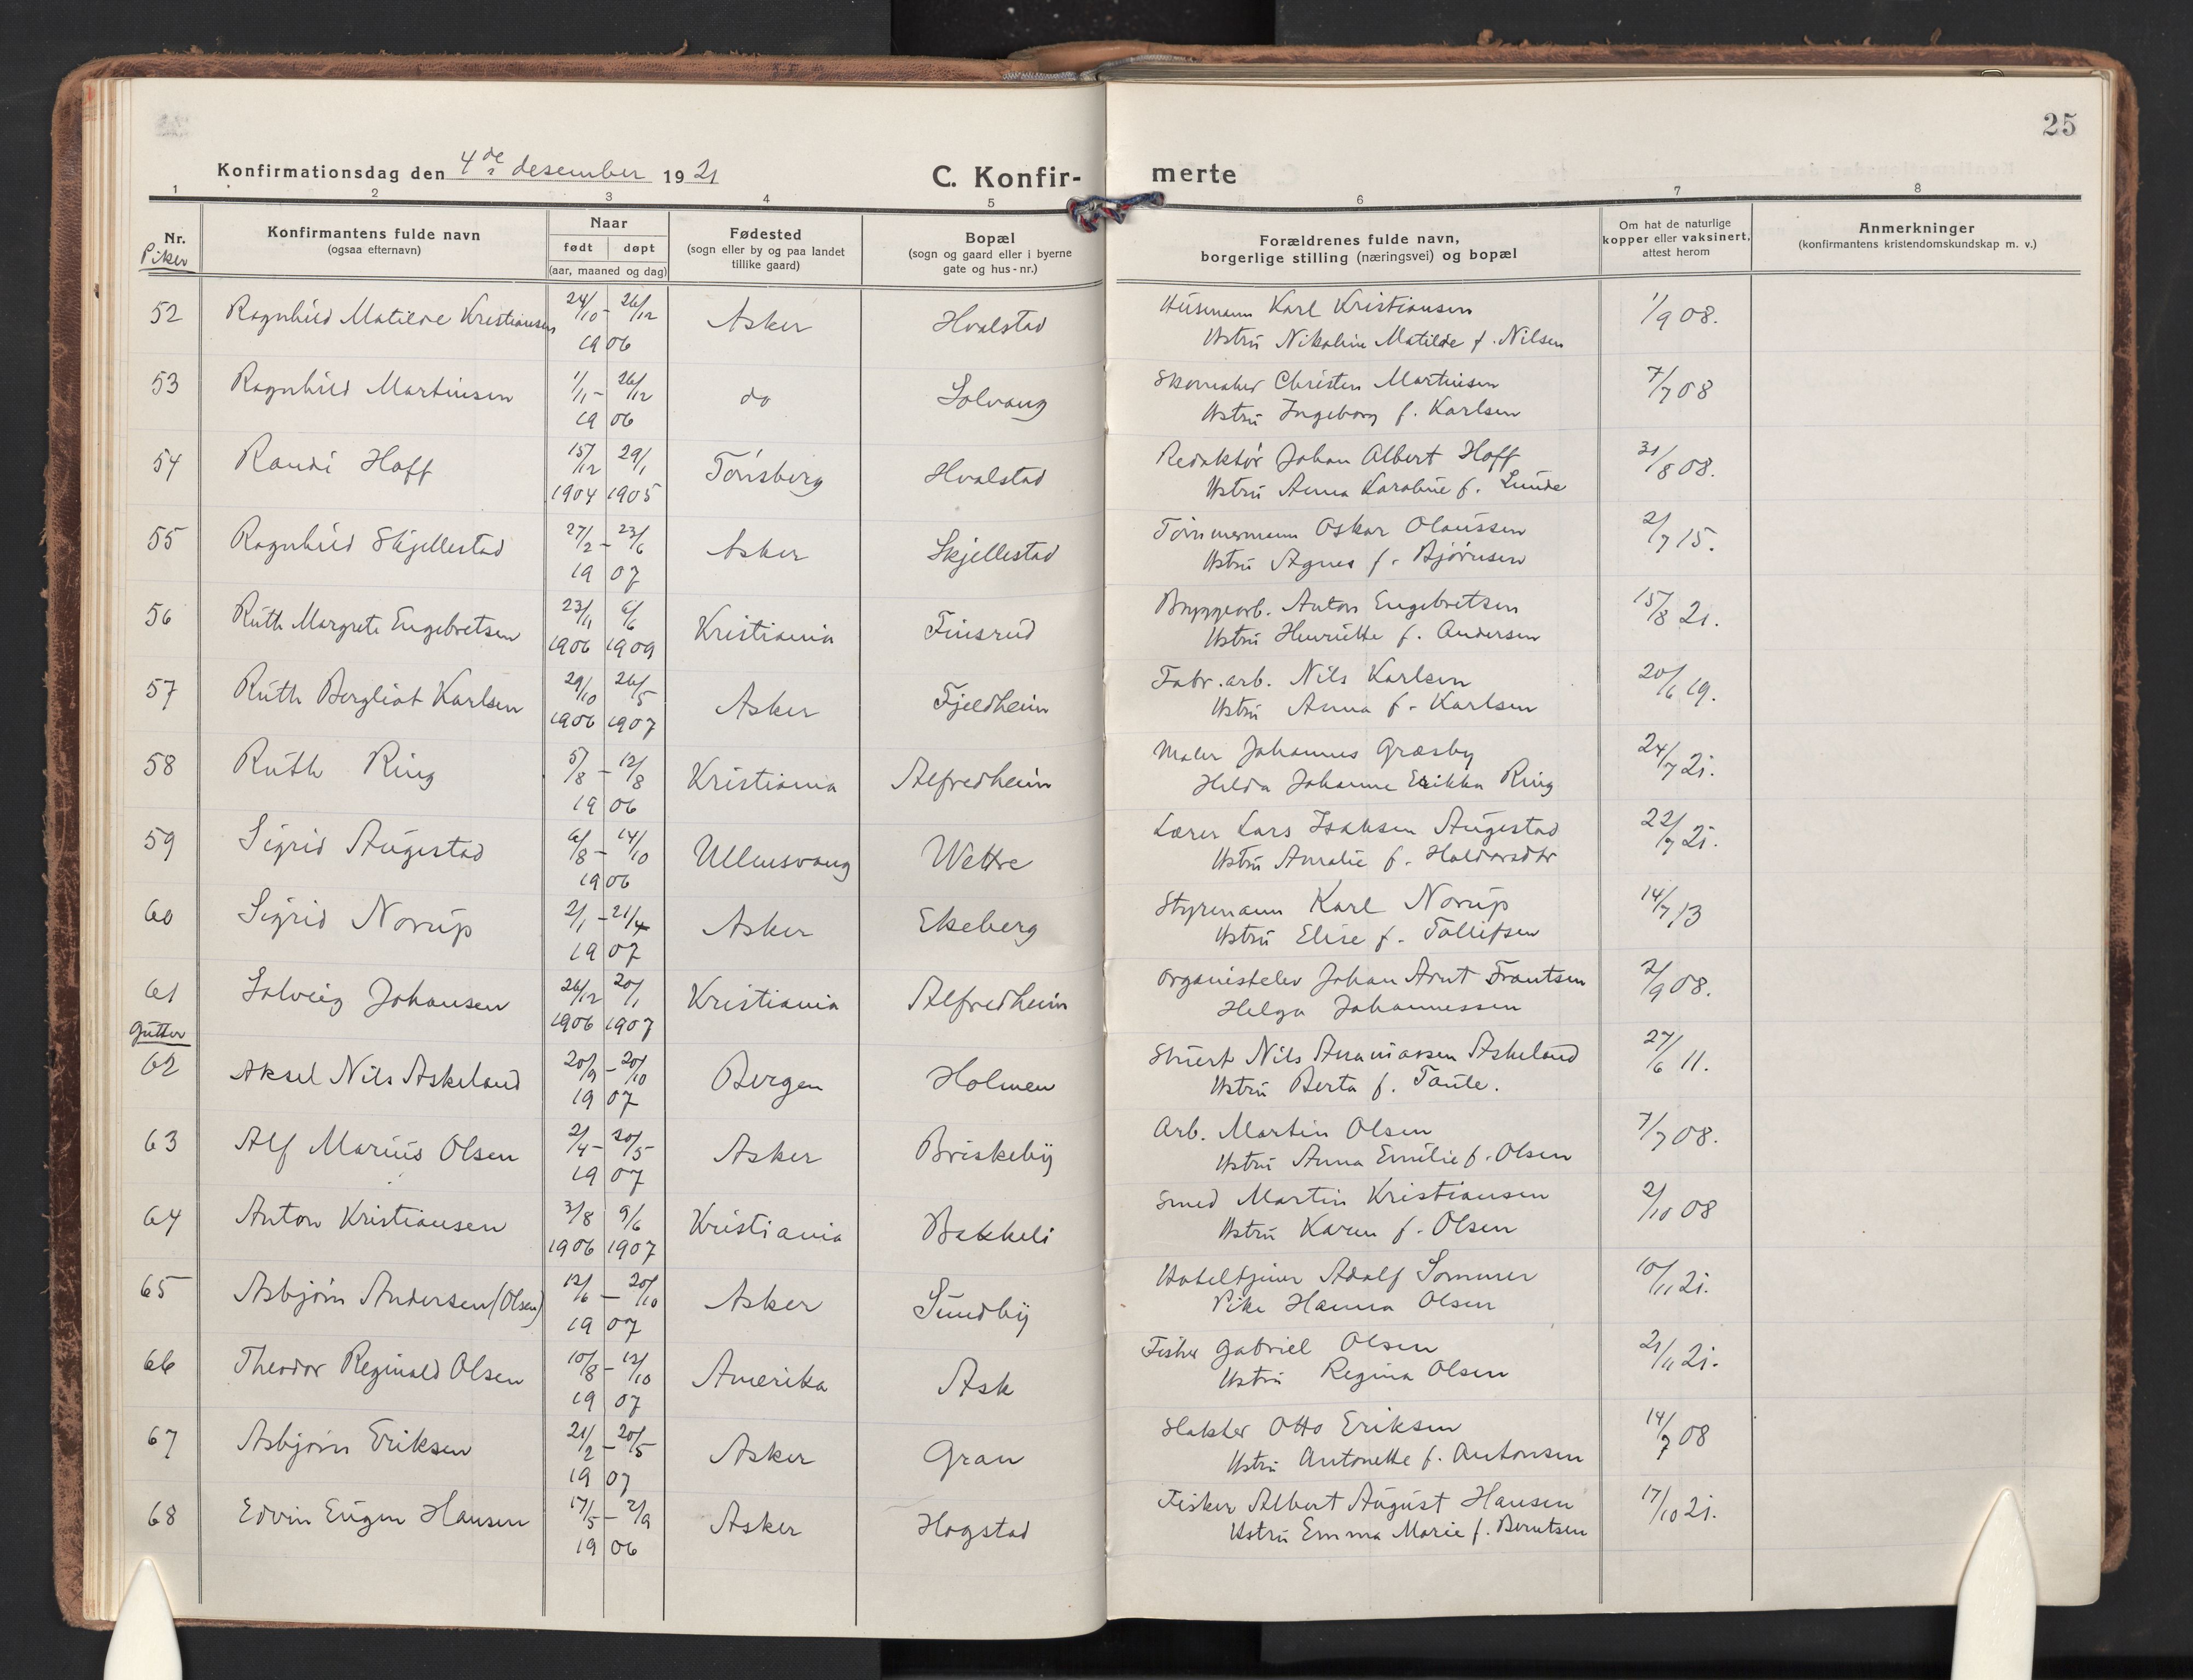 25
Konfirmationsdag den 4de desember 1921
C. Konfir-
merte
1 2 3 4 5 6 7 8
Nr.
Piker
Konfirmantens fulde navn
(ogsaa efternavn)
Naar
født døpt
(aar, maaned og dag)
Fødested
(sogn eller by og paa landet
tillike gaard)
Bopæl
(sogn og gaard eller i byerne
gate og hus-nr.)
Forældrenes fulde navn,
borgerlige stilling (næringsvei) og bopæl
Om hat de naturlige
kopper eller vaksinert,
attest herom
Anmerkninger
(konfirmantens kristendomskundskap m. v.)
52 Ragnhild Matilde Kristiansen 24/10 - 26/12 Asker Hvalstad Husmann Karl Kristiansen 1/9 08.
1906 Hstru Nikoline Matilde f. Nilsen
53 Ragnhild Martinsen 1/1 - 26/12 do Solvang Skomaker Christen Martinsen 7/7 08
1906 Hstru Ingeborg f. Karlsen
54 Randi Hoff 15/12 29/1 Tönsberg Hvalstad Redaktör Johan Albert Hoff 31/8 08.
1904 1905 Hstru Anna Karoline f. Lunde
55 Ragnhild Skjellestad 27/2 - 23/6 Asker Skjellestad Tömmermann Oskar Olaussen 2/7 15.
1907 Hstru Agnes f. Björnsen
56 Ruth Margrete Engebretsen 23/1 6/6 Kristiania Finsrud Bryggearb. Anton Engebretsen 15/8 21.
1906 1909 Hstru Henriette f. Andersen
57 Ruth Bergliot Karlsen 29/10 26/5 Asker Fjeldheim Fabr. arb. Nils Karlsen 20/6 19.
1906 1907 Hstru Anna f. Karlsen
58 Ruth Ring 5/8 - 12/8 Kristiania Alfredheim Maler Johannes Græsby 24/7 21.
1906 Helda Johanne Erikka Ring
59 Sigrid Augestad 6/8 - 14/10 Ullensvang Wettre Lærer Lars Isaksen Augestad 22/7 21.
1906 Hstru Amalie f. Haldorsdtr
60 Sigrid Norup 2/1 - 21/4 Asker Ekeberg Styrmann Karl Norup 14/7 13
1907 Hstru Elise f. Tollefsen
61 Solveig Johansen 26/12 20/1 Kristiania Alfredheim Organistelev Johan Arnt Frantsen 2/9 08.
1906 1907 Helga Johannessen
Gutter
62 Aksel Nils Askeland 20/9 - 20/10 Bergen Holmen Stuert Nils Ananiassen Askeland 27/6 11.
1907 Hstru Berta f. Taule.
63 Alf Marius Olsen 2/4 - 20/5 Asker Briskeby Arb. Martin Olsen 7/7 08.
1907 Hstru Anna Emilie f. Olsen
64 Anton Kristiansen 3/8 9/6 Kristiania Bakkeli Smed Martin Kristiansen 2/10 08
1906 1907 Hstru Karen f. Olsen
65 Asbjörn Andersen (Olsen) 12/6 - 20/10 Asker Sundby Hoteltjener Adolf Sommer 10/11 21.
1907 Pike Hanna Olsen
66 Theodor Reginald Olsen 10/8 - 12/10 Amerika Ask Fisker Gabriel Olsen 21/11 21.
1907 Hstru Regina Olsen
67 Asbjörn Eriksen 21/2 - 20/5 Asker Gran Slakter Otto Eriksen 14/7 08
1907 Hstru Antonette f. Antonsen
68 Edvin Eugen Hansen 17/5 - 2/9 Asker Hogstad Fisker Albert August Hansen 17/10 21.
1906 Hstru Emma Marie f. Berntsen